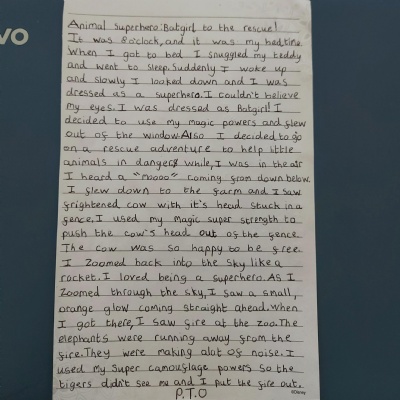 VO
Animal Superhero: Batgirl to the rescue!
It was 8 o'clock, and it was my bedtime.
When I got to bed I snuggled my teddy
and went to sleep. Suddenly I woke up
and slowly I looked down and I was
dressed as a superhero. I couldn't believe
my eyes. I was dressed as Batgirl! I
decided to use my magic powers and flew
out of the window. Also I decided to go
on a rescue adventure to help little
animals in danger while, I was in the air
I heard a "moooo" coming from down below.
I flew down to the farm and I saw
frightened cow with it's head stuck in a
fence. I used my magic super strength to
push the cow's head out of the fence.
The cow was so happy to be free.
I zoomed back into the sky like a
rocket. I loved being a superhero. As I
zoomed through the sky, I saw a small,
orange glow coming straight ahead. When
I got there, I saw fire at the zoo. The
elephants were running away from the
fire. They were making alot of noise. I
used my super camouflage powers so the
tigers didn't see me and I put the fire out.
P.T.O
©Disney